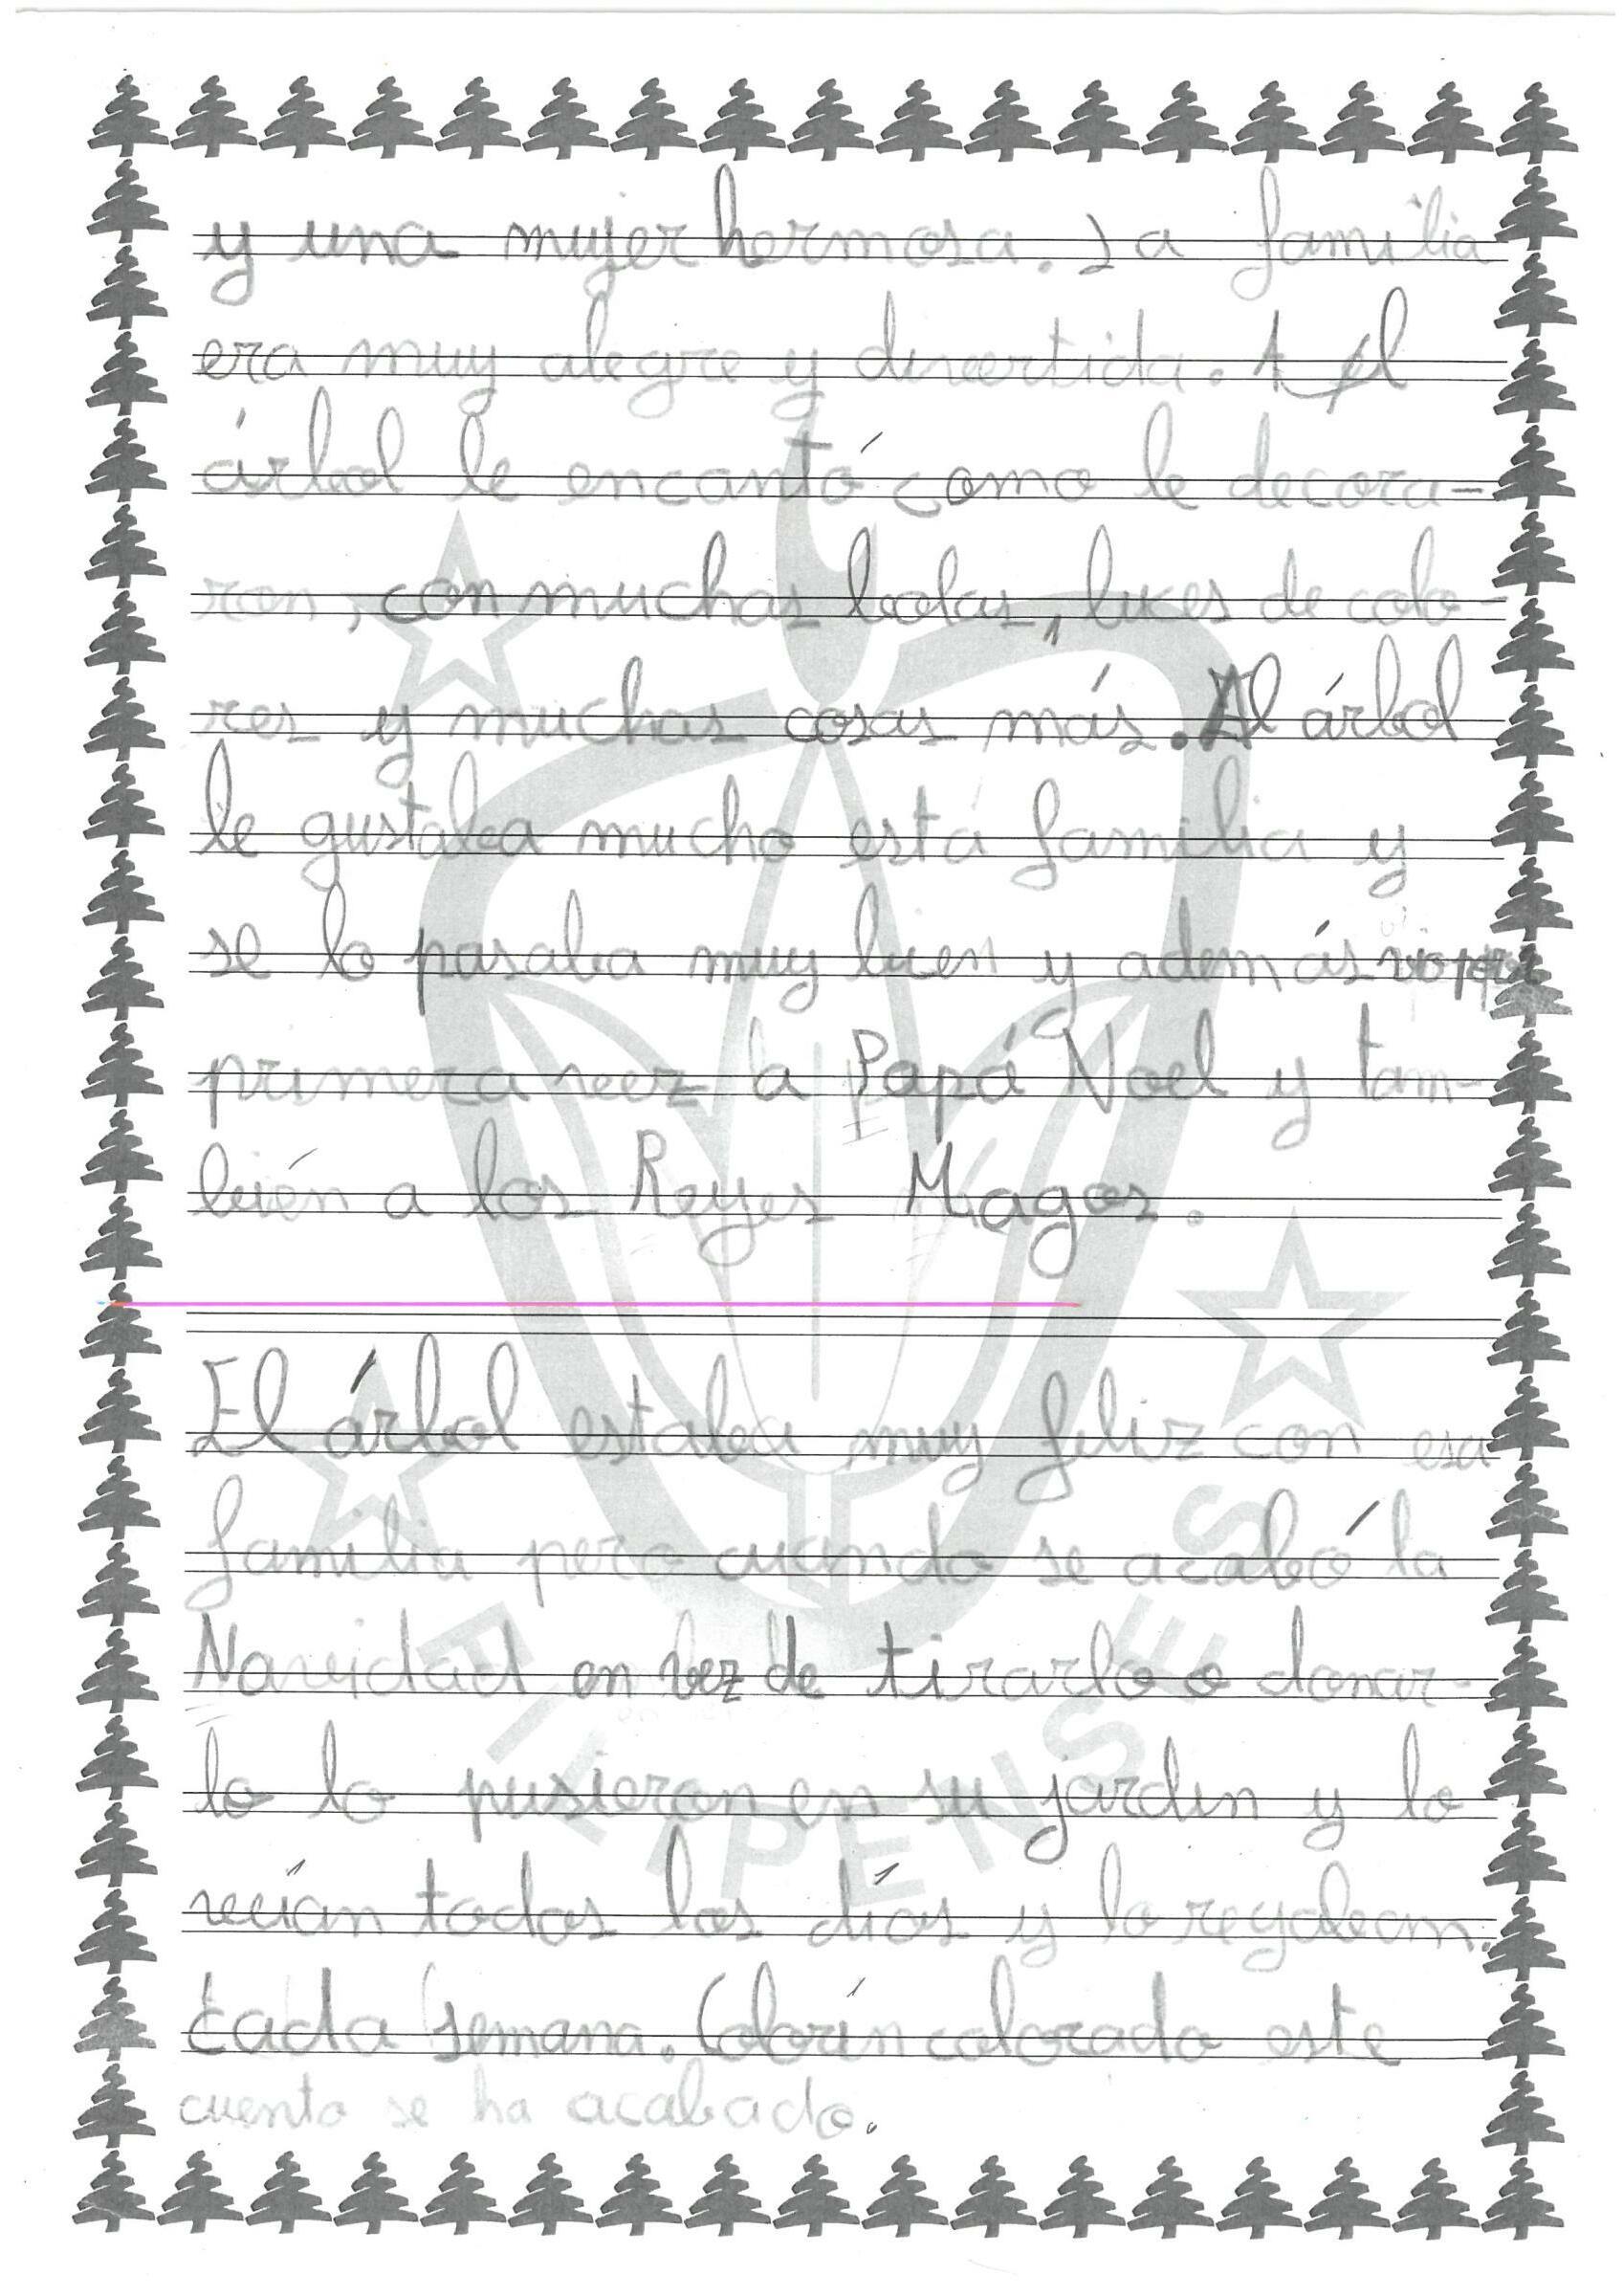 y una mujer hermosa. La familia
era muy alegre y divertida. Al
árbol le encantó como le decora-
ron, con muchas bolas, luces de colo-
res y muchas cosas más. Al árbol
le gustaba mucho esta familia y
se lo pasaba muy bien y además vio por
primera vez a Papá Noel y tam-
bién a los Reyes Magos.
El árbol estaba muy feliz con esa
familia pero cuando se acabó la
Navidad en vez de tirarlo o donar-
lo lo pusieron en su jardin y lo
veían todos los días y lo regaban
cada semana. Colorín colorado este
cuento se ha acabado.